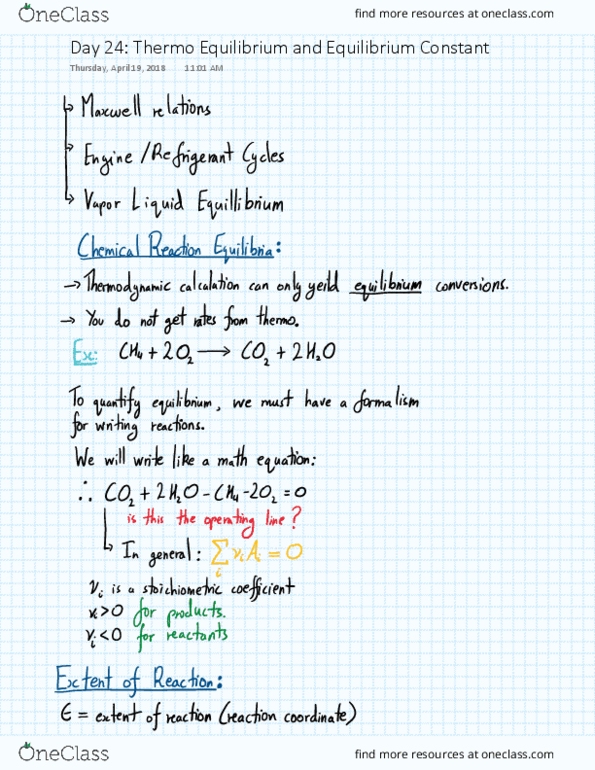 OneClass
find more resources at oneclass.com
Day 24: Thermo Equilibrium and Equilibrium Constant
Thursday, April 19, 2018 11:01 AM
↳ Maxwell relations
↳ Engine /Refrigerant Cycles
↳ Vapor Liquid Equillibrium
Chemical Reaction Equilibria:
→ Thermodynamic calculation can only yeild equilibrium conversions.
→ You do not get rates from thermo.
Ex: CH₄ + 2O₂ → CO₂ + 2H₂O
To quantify equilibrium, we must have a formalism
for writing reactions.
We will write like a math equation:
∴ CO₂ + 2H₂O - CH₄ - 2O₂ = 0
is this the operating line?
↳ In general: Σᵢ νᵢAᵢ = 0
νᵢ is a stoichiometric coefficient
νᵢ>0 for products.
νᵢ<0 for reactants
Extent of Reaction:
ϵ = extent of reaction (reaction coordinate)
OneClass
find more resources at oneclass.com